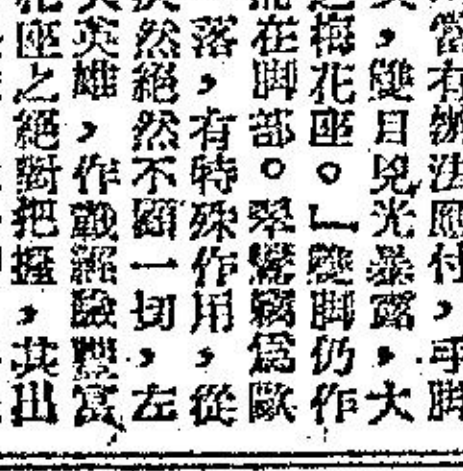 當有辦法應付，手脚
，雙目兇光暴露，大
梅花座。」雙脚仍作
在脚部。翠鸞竊爲歐
落，有特殊作用，從
然絕然不顧一切，左
英雄，作戰經驗豐富
座之絕對把握，其出